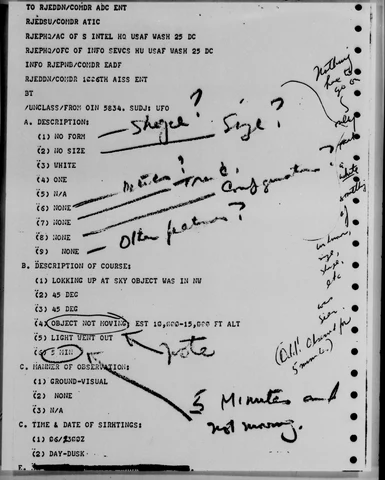 TO RJEDDN/COMDR ADC ENT
RJEDSU/COMDR ATIC
RJEPHQ/AC OF S INTEL HQ USAF WASH 25 DC
RJEPHQ/OFC OF INFO SEVCS HU USAF WASH 25 DC
INFO RJEPNB/COMDR EADF
RJEDDN/COMDR 1226TH AISS ENT
BT
/UNCLASS/FROM OIN 5834. SUDJ: UFO
A. DESCRIPTION:
(1) NO FORM
Shape?
(2) NO SIZE
Size?
(3) WHITE
(4) ONE
(5) N/A
(6) NONE
(7) NONE
Configuration?
(8) NONE
(9) NONE
Other features?
B. DESCRIPTION OF COURSE:
(1) LOKKING UP AT SKY OBJECT WAS IN NW
(2) 45 DEG
(3) 45 DEG
(4) OBJECT NOT MOVING EST 10,000-15,000 FT ALT
(5) LIGHT WENT OUT
(6) 5 MIN
note
C. MANNER OF OBSERVATION:
(1) GROUND-VISUAL
(2) NONE
(3) N/A
5 Minutes and
not moving.
C. TIME & DATE OF SIRHTINGS:
(1) 06/2300Z
(2) DAY-DUSK
Nothing
have to
go on
only
white
of
size,
shape,
etc
was
seen.
(Obj. Observed for
5 min.)